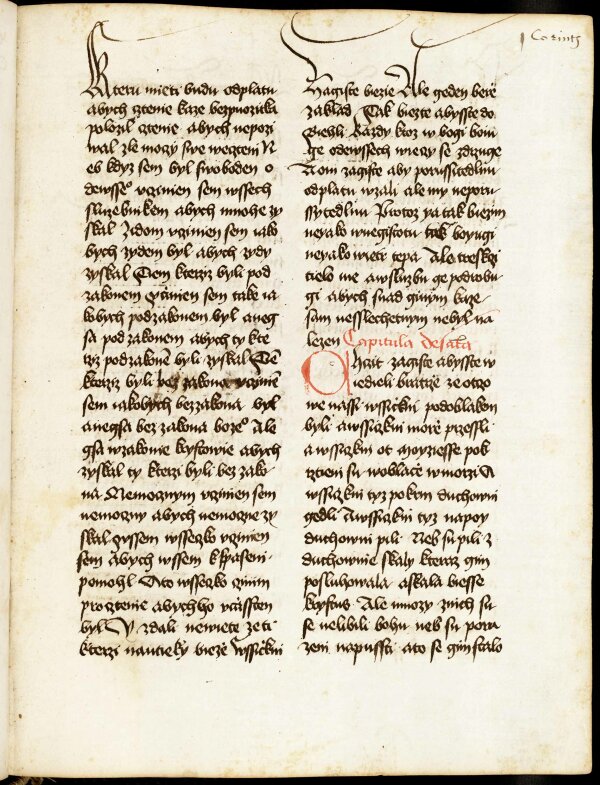 1 Corinth
Kteru mieti budu odplatu
abych cztenie kaze bez puozitka
polozil cztenie abych nepozi
wal zle moczy swe weczteni N
eb kdyz sem byl swoboden o
de wsse° vczinien sem wssech
sluzebnikem abych mnohe zy
skal Zidom vczinien sem iako
bych zydem byl abych zydy
zyskal Tem kterzy byli pod
zakonem vczinien sem take ia
kobych pod zakonem byl a neg
sa pod zakonem abych ty kte
rzy pod zakonē byli zyskal Tē
kterzi byli bez zakona vczinē
sem iakobych bez zakona byl
a negsa bez zakona boze° Ale
gsa w zakonie krystowie abych
zyskal ty kterzi byli bez zako
na Nemocznym vczinien sem
nemoczny abych nemoczne zy
skal Wssem wsseczko vczinien
sem abych wssem k spaseni
pomohl A to wsseczko czinim
pro cztenie abych ho vcziesten
byl Y zdali newiete ze ti
kterzi na uieky bieze wssiczkni
zagiste biezie Ale geden beře
zaklad Tak biezte abysste do
biehli Kazdy ktoz w bogi bom
ge ode wssech wieczy se zdrzuge
A oni zagiste aby porussitedlnu
odplatu wzali ale my neporu
ssytedlnu Protoz ya tak biezim
ne yako w negistotu tak boyugi
ne yako wietr tepa Ale treskczi
tielo me a w sluzbu ge podrobu
gi abych snad giným kaze
sam nesslechetnym nebyl na
lezen Capitula desata
Nchzit zagiste abysste w
iedieli bratrze ze otczo
we nassi wssiczkni pod oblakem
byli a wssiczkni moře przessli
a wssiczkni ot moyziesse pok
rztieni su w oblacze w morzi A
wssiczkni tyz pokrm duchowni
gedli A wssiczkni tyz napoy
duchowni pili Neb su pili z
duchownie skaly kteraz gim
posluhowala a skala biesse
krystus Ale mnozy z nich su
se nelibili bohu neb su pora
zeni na pussti a to se gim stalo